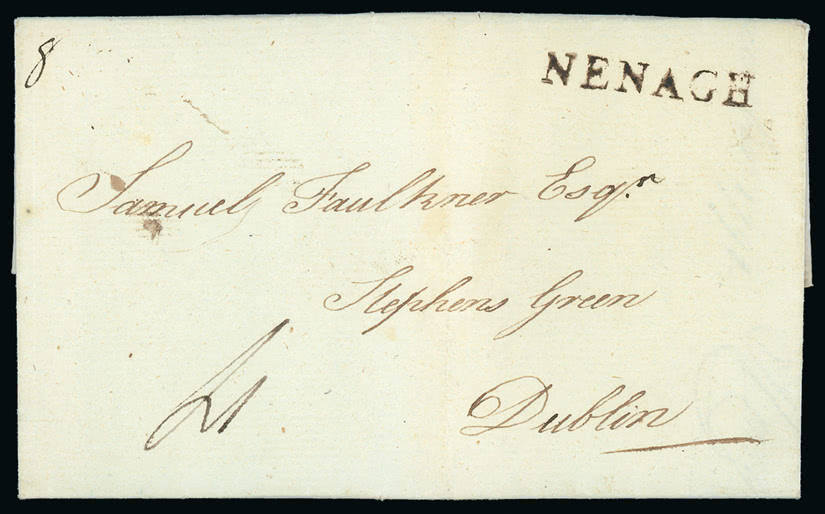 8
NENAGH
Samuel Faulkner Esqr.
Stephens Green
4
Dublin